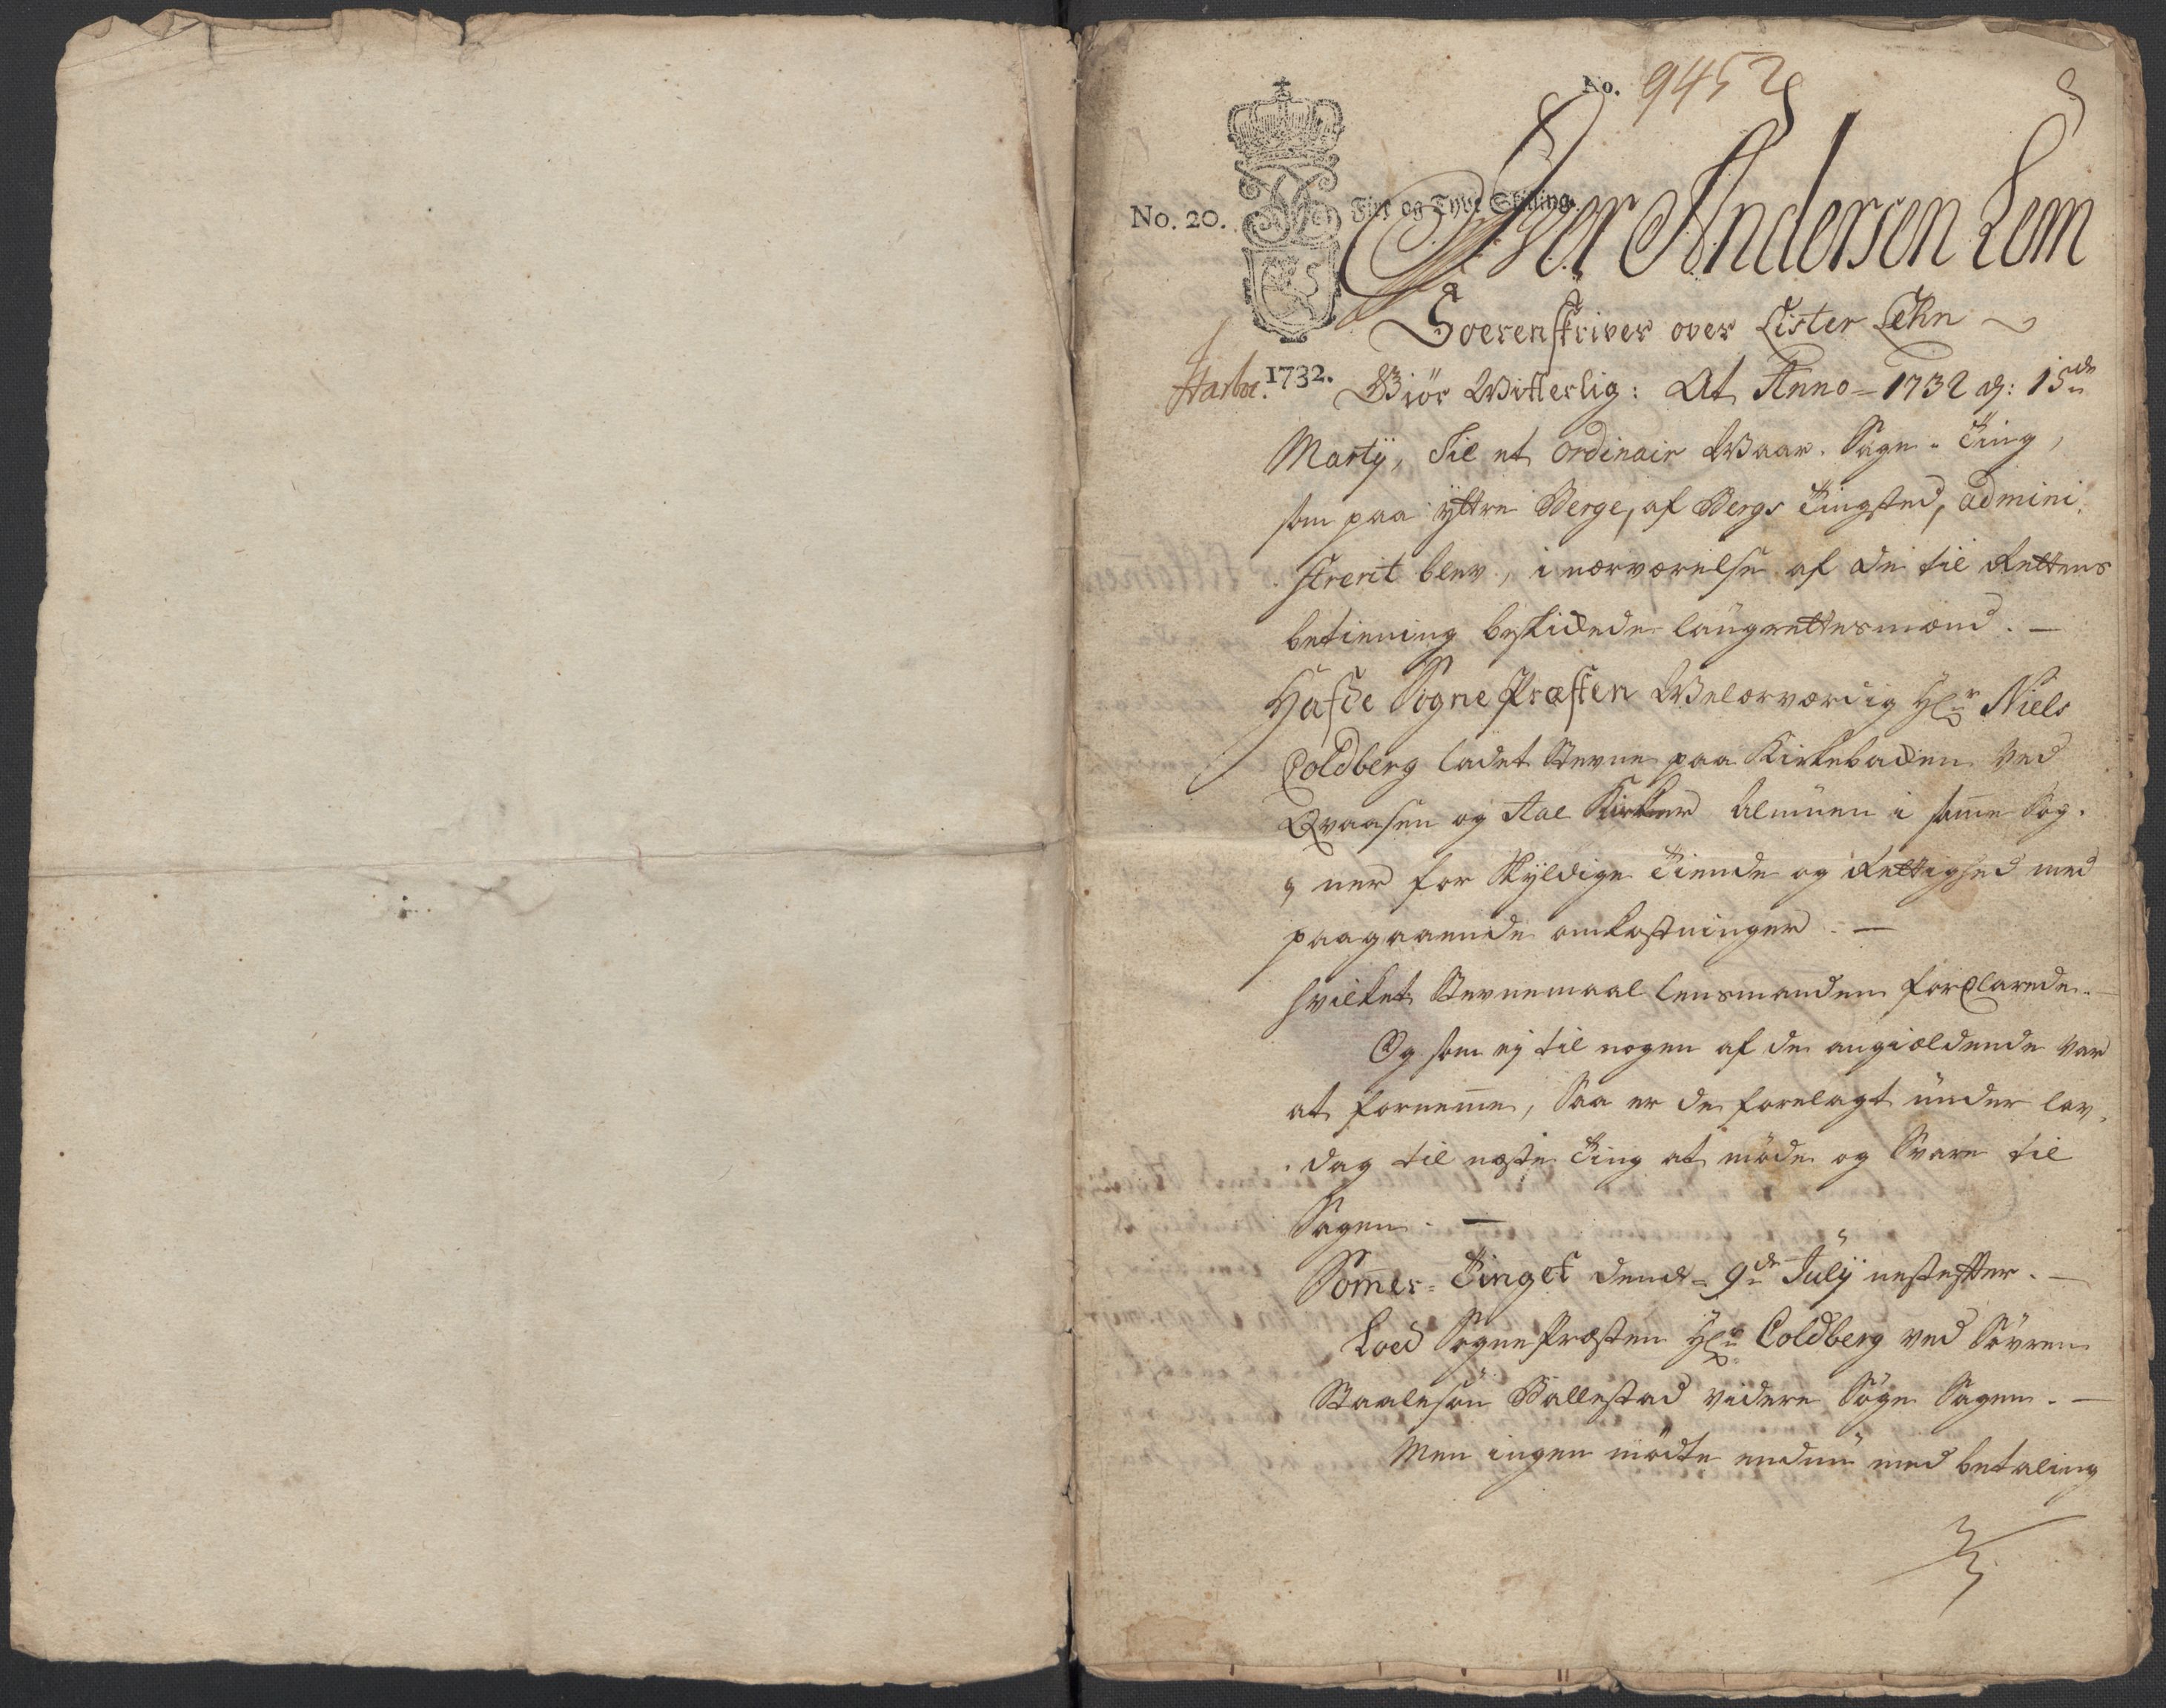 No. 9452
No. 20. Fire og Tyve Skilling.
Iver Andersen Lem
Soerenskriver over Lister Lehn
1732. Giör Witterlig: At Anno = 1732 d: 15de
Martÿ, Til et ordinair Waar-Sage-Ting,
som paa ÿttre Berge, af Bergs Tingsted, admini-
strerit blev, i nærværelse af de til Rettens
betiening beskickede laugrettesmænd. —
Hafde Sogne Præsten Welærværdig Hr Niels
Coldberg ladet stevne paa Kirkebacken ved
Qvaasen og Aae Kirker Almuen i samme Sog-
ner for skÿldige Tiende og Rettighed med
paagaaende omkostninger. —
hvilket Stevnemaal lensmanden forclarede. —
Og som ej til nogen af de angiældende var
at fornemme, Saa er de forelagt under lav-
dag til neste Ting at møde og Svare til
Sagen. —
Sommer-Tinget dend = 9de Julÿ nestefter. —
Loed Sogne Præsten Hr Coldberg ved Sövren
Staalesön Ballestad videre Söge Sagen. —
Men ingen mödte endnu med betaling